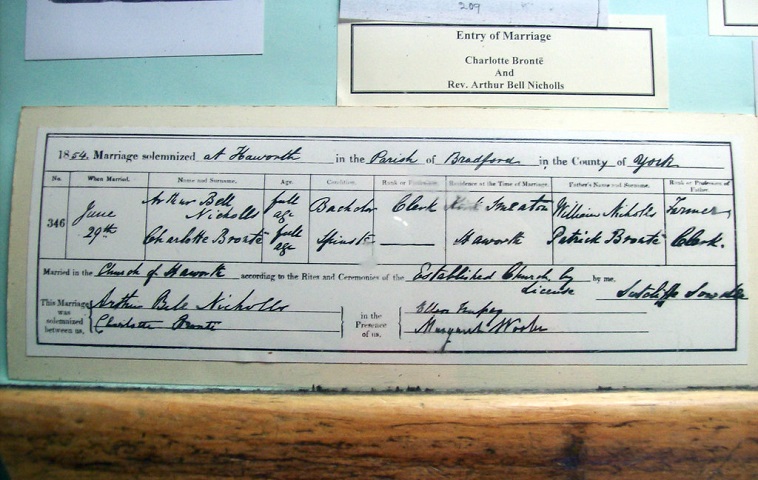 209
Entry of Marriage
Charlotte Brontë
And
Rev. Arthur Bell Nicholls
1854. Marriage solemnized at Haworth in the Parish of Bradford in the County of York
No. When Married. Name and Surname. Age. Condition. Rank or Profession. Residence at the Time of Marriage. Father's Name and Surname. Rank or Profession of Father.
346 June 29th Arthur Bell Nicholls full age Bachelor Clerk Kirk Smeaton William Nicholls Farmer
Charlotte Brontë full age Spinster Haworth Patrick Brontë Clerk.
Married in the Church of Haworth according to the Rites and Ceremonies of the Established Church by License by me, Sutcliffe Sowden
This Marriage was solemnized between us, Arthur Bell Nicholls
Charlotte Brontë
in the Presence of us,
Ellen Nussey
Margaret Wooler